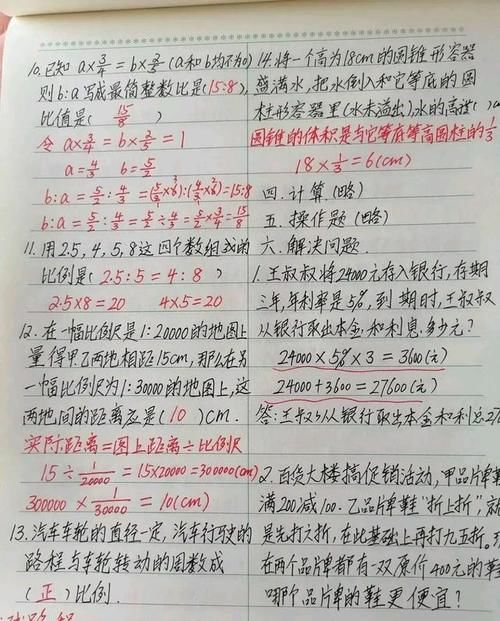 10. 已知 a×3/4 = b×2/5 (a和b均不为0)
则b:a写成最简整数比是(15:8),
比值是( 15/8 )
令 a×3/4 = b×2/5 = 1
a=4/3 b=5/2
b:a = 5/2 : 4/3 = (5/2×6):(4/3×6) = 15:8
b:a = 5/2 : 4/3 = 5/2 ÷ 4/3 = 5/2 × 3/4 = 15/8
11. 用2.5, 4, 5, 8这四个数组成的
比例是( 2.5:5 = 4:8 )
2.5×8=20 4×5=20
12. 在一幅比例尺是1:20000的地图上
量得甲乙两地相距15cm, 那么在另
一幅比例尺为1:30000的地图上, 这
两地间的距离应是( 10 )cm.
实际距离=图上距离÷比例尺
15÷1/20000=15×20000=300000(cm)
300000×1/30000=10(cm)
13. 汽车车轮的直径一定, 汽车行驶的
路程与车轮转动的周数成
( 正 )比例.
14. 将一个高为18cm的圆锥形容器
盛满水, 把水倒入和它等底的圆
柱形容器里(水未溢出), 水的高度(
圆锥的体积是与它等底等高圆柱的1/3
18×1/3=6(cm)
四. 计算. (略)
五. 操作题 (略)
六. 解决问题.
1. 王叔叔将24000元存入银行, 存期
三年, 年利率是5%, 到期时, 王叔叔
从银行取出本金和利息多少元?
24000×5%×3=3600(元)
24000+3600=27600(元)
答: 王叔叔从银行取出本金和利息27
2. 百货大楼搞促销活动, 甲品牌鞋
满200减100. 乙品牌鞋"折上折"就
是先打六折, 在此基础上再打九五折.
在两个品牌都有一双原价400元的鞋
哪个品牌的鞋更便宜?